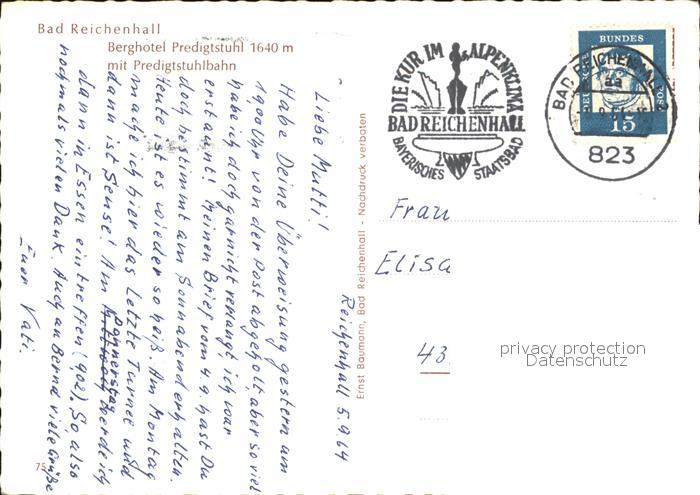 Bad Reichenhall
Berghotel Predigtstuhl 1640 m
mit Predigtstuhlbahn
DIE KUR IM ALPENKLIMA
BAD REICHENHALL
BAYERISCHES STAATSBAD
BAD REICHENHALL
823
BUNDES
15
Reichenhall 5.9.64
Liebe Mutti!
Habe Deine Überweisung gestern um
1900 Uhr von der Post abgeholt, aber so viel
habe ich doch garnicht verlangt, ich war
erstaunt! Meinen Brief vom 4.9. hast Du
doch bestimmt am Sonnabend erhalten.
Heute ist es wieder so heiß. Am Montag
mache ich hier das Letzte Turnee und
dann ist Sense! Am Donnerstag werde ich
dann in Essen eintreffen (902). So, also
nochmals vielen Dank. Auch an Bernd viele Grüße
Euer Vati.
Ernst Baumann, Bad Reichenhall - Nachdruck verboten
Frau
Elisa
43
privacy protection
Datenschutz
75